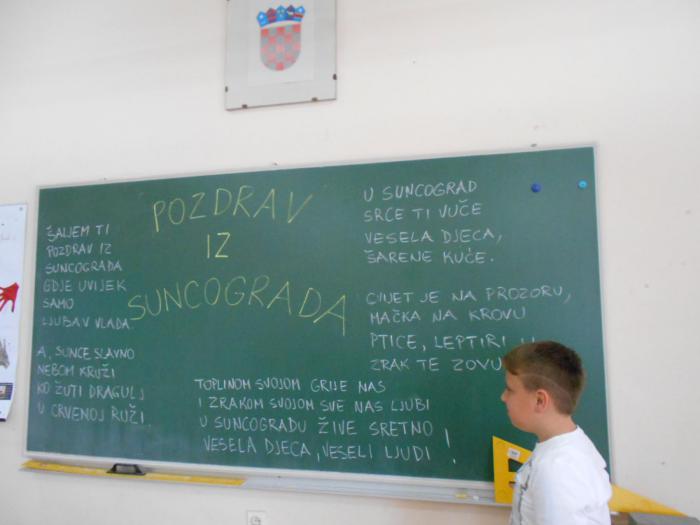 POZDRAV
IZ
SUNCOGRADA
ŠALJEM TI
POZDRAV IZ
SUNCOGRADA
GDJE UVIJEK
SAMO
LJUBAV VLADA.
A, SUNCE SLAVNO
NEBOM KRUŽI
KO ŽUTI DRAGULJ
U CRVENOJ RUŽI.
U SUNCOGRAD
SRCE TI VUČE
VESELA DJECA,
ŠARENE KUĆE.
CVIJET JE NA PROZORU,
MAČKA NA KROVU
PTICE, LEPTIRI U
ZRAK TE ZOVU
TOPLINOM SVOJOM GRIJE NAS
I ZRAKOM SVOJOM SVE NAS LJUBI
U SUNCOGRADU ŽIVE SRETNO
VESELA DJECA, VESELI LJUDI!